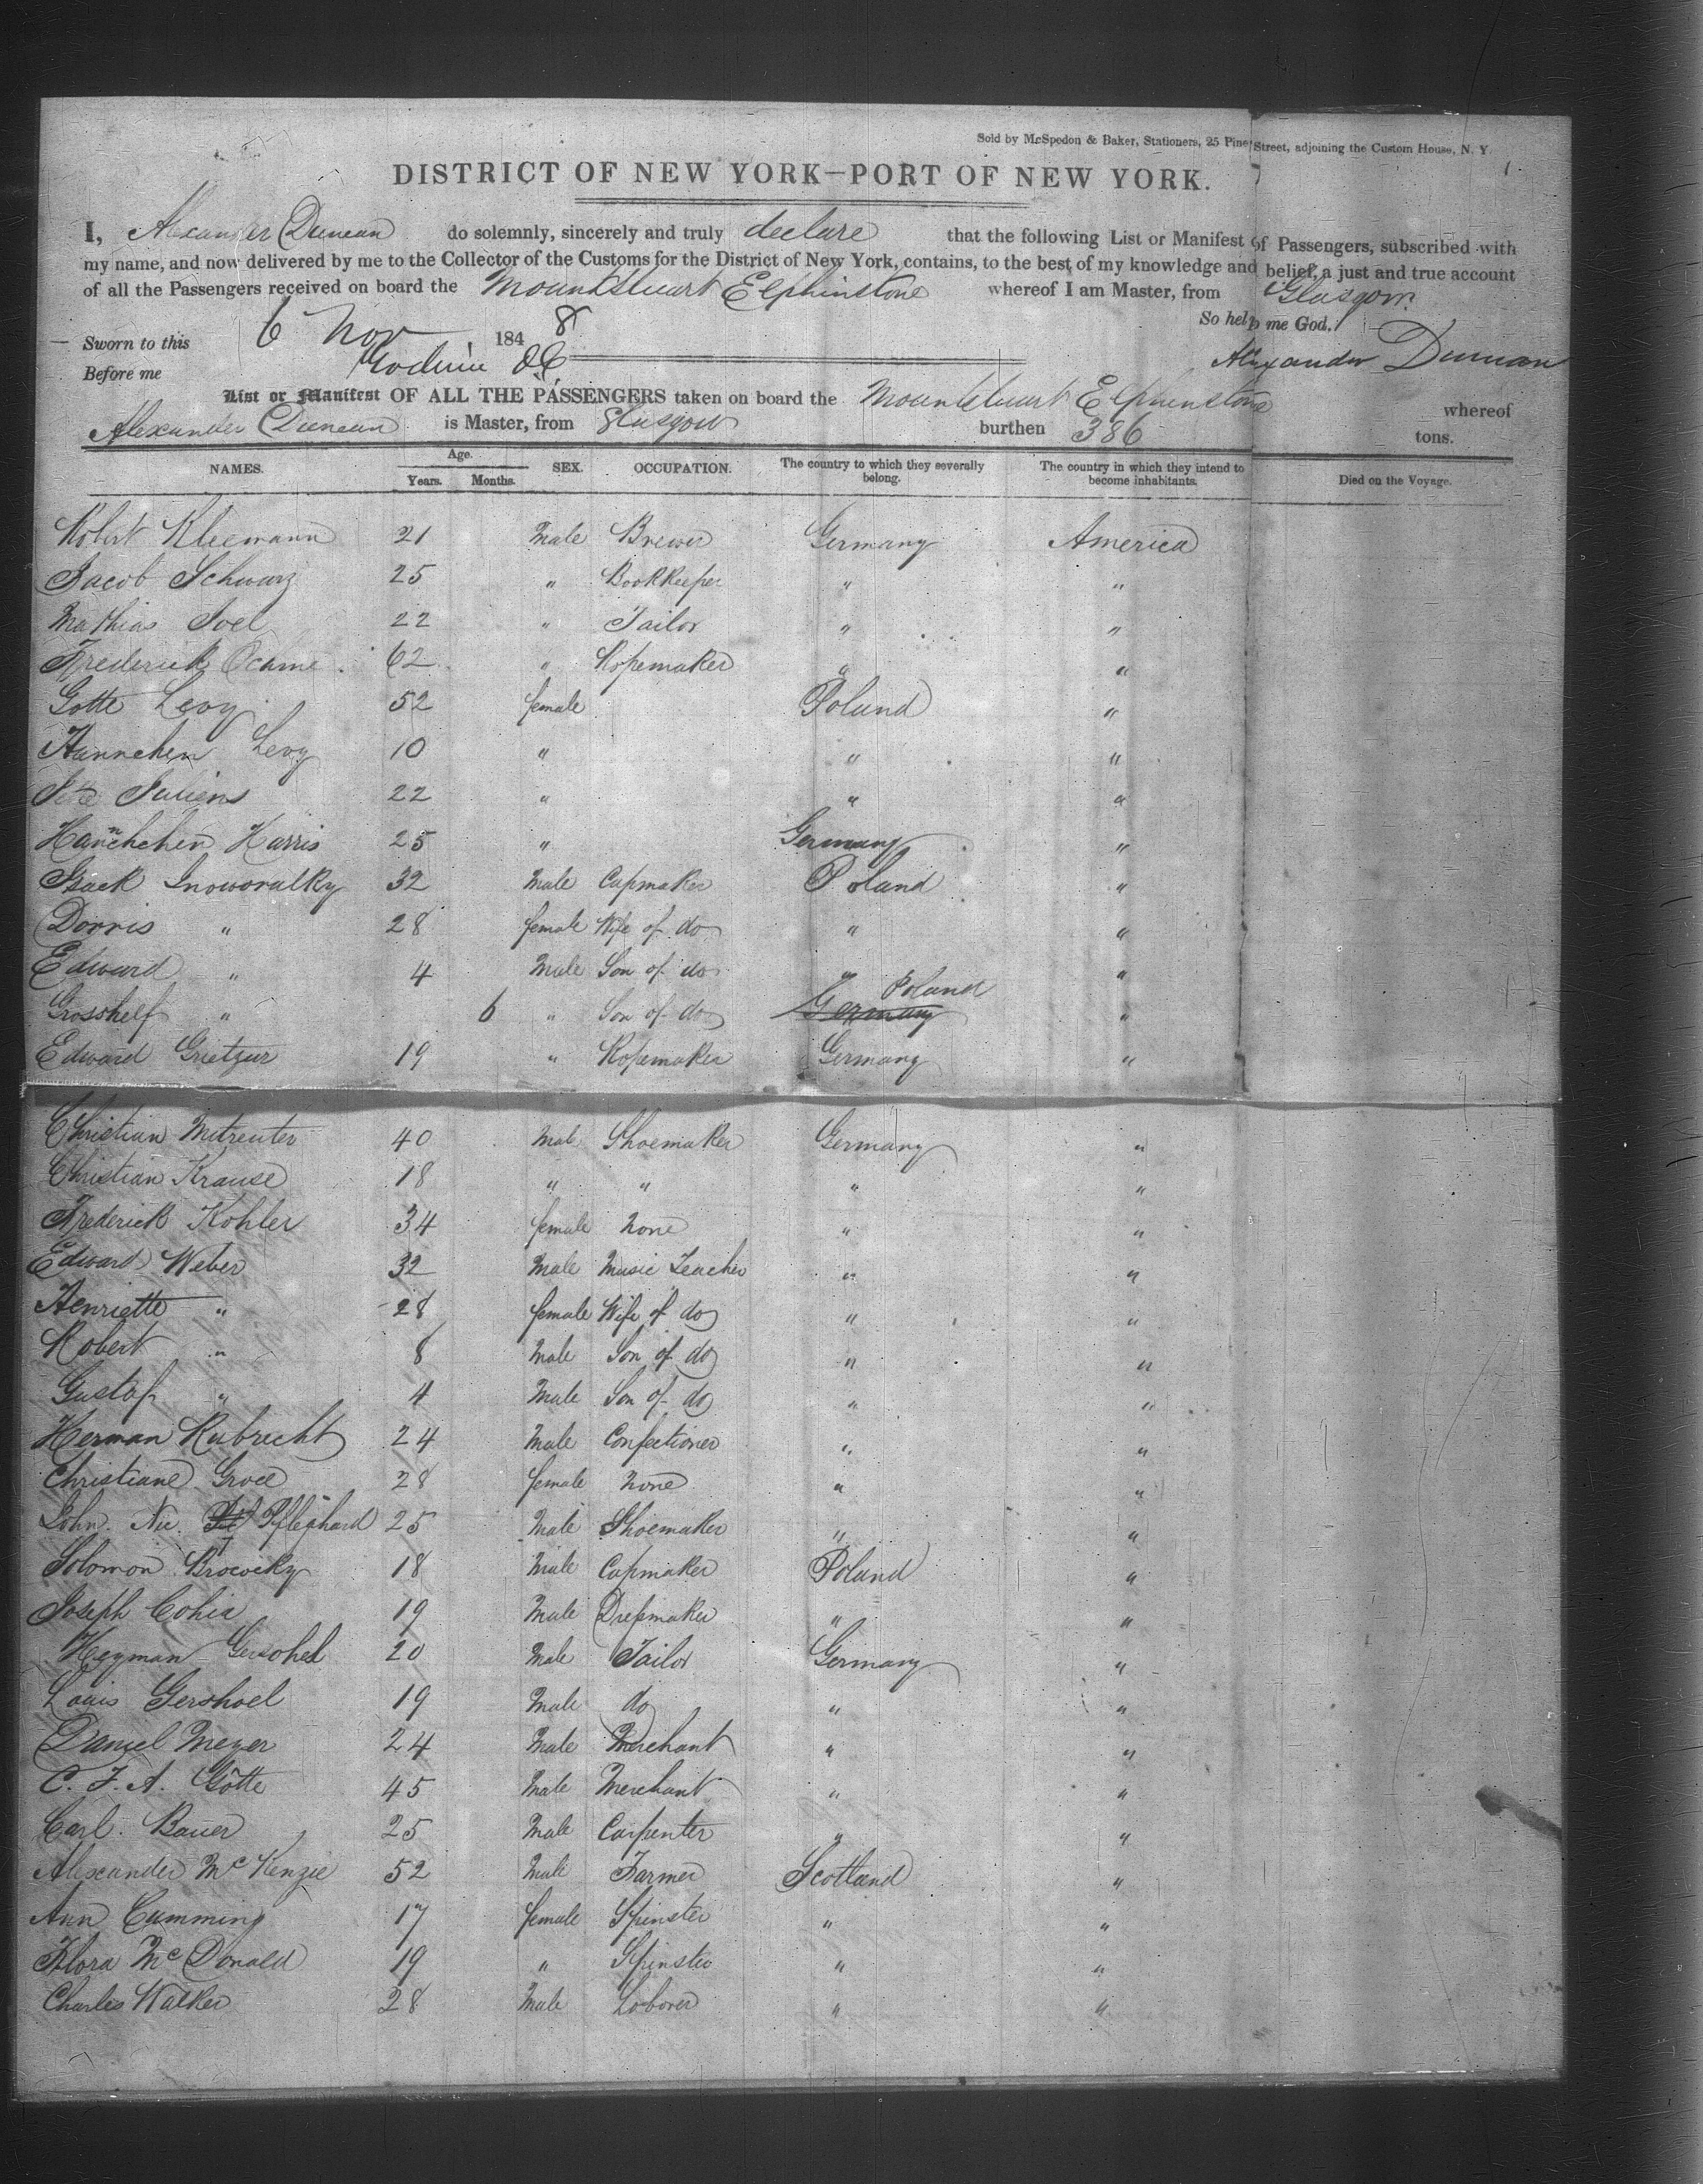 Sold by McSpedon & Baker, Stationers, 25 Pine Street, adjoining the Custom House, N. Y.
DISTRICT OF NEW YORK—PORT OF NEW YORK.
I, Alexander Duncan do solemnly, sincerely and truly declare that the following List or Manifest of Passengers, subscribed with
my name, and now delivered by me to the Collector of the Customs for the District of New York, contains, to the best of my knowledge and belief, a just and true account
of all the Passengers received on board the Mountstuart Elphinstone whereof I am Master, from Glasgow
So help me God.
Sworn to this 6 Nov 1848
Alexander Duncan
Before me
List or Manifest OF ALL THE PASSENGERS taken on board the Mountstuart Elphinstone whereof
Alexander Duncan is Master, from Glasgow burthen 386 tons.
NAMES. Age. Years. Months. SEX. OCCUPATION. The country to which they severally belong. The country in which they intend to become inhabitants. Died on the Voyage.
Robert Kleemann 21 Male Brewer Germany America
Jacob Schwarz 25 " Bookkeeper " "
Mathias Joel 22 " Tailor " "
Frederick 62 " Ropemaker " "
Gotte Levy 52 female Poland "
Hannchen Levy 10 " " "
Juliens 22 " " "
Hannchchen Harris 25 " Germany "
Isack Inoworalky 32 Male Capmaker Poland "
Dorris " 28 female Wife of do " "
Edward " 4 Male Son of do " "
Grosshelf " 6 " Son of do Germany Poland "
Edward Grietzur 19 " Ropemaker Germany "
Christian Mitreuter 40 Male Shoemaker Germany "
Christian Krause 18 " " " "
Frederick Kohler 34 female None " "
Edward Weber 32 Male Music Teacher " "
Henriette " 28 female Wife of do " "
Robert " 8 Male Son of do " "
Gustaf " 4 Male Son of do " "
Herman Rubrecht 24 Male Confectioner " "
Christiane Groce 28 female None " "
John. Nic. Pfleghard 25 Male Shoemaker " "
Solomon Brococky 18 Male Capmaker Poland "
Joseph Cohia 19 Male Dressmaker " "
Heyman Gersohel 20 Male Tailor Germany "
Louis Gershoel 19 Male do " "
Daniel Meyer 24 Male Merchant " "
C. F. A. Götte 45 Male Merchant " "
Carl. Bauer 25 Male Carpenter " "
Alexander McKenzie 52 Male Farmer Scotland "
Ann Cumming 17 female Spinster " "
Flora McDonald 19 " Spinster " "
Charles Walker 28 Male Laborer " "